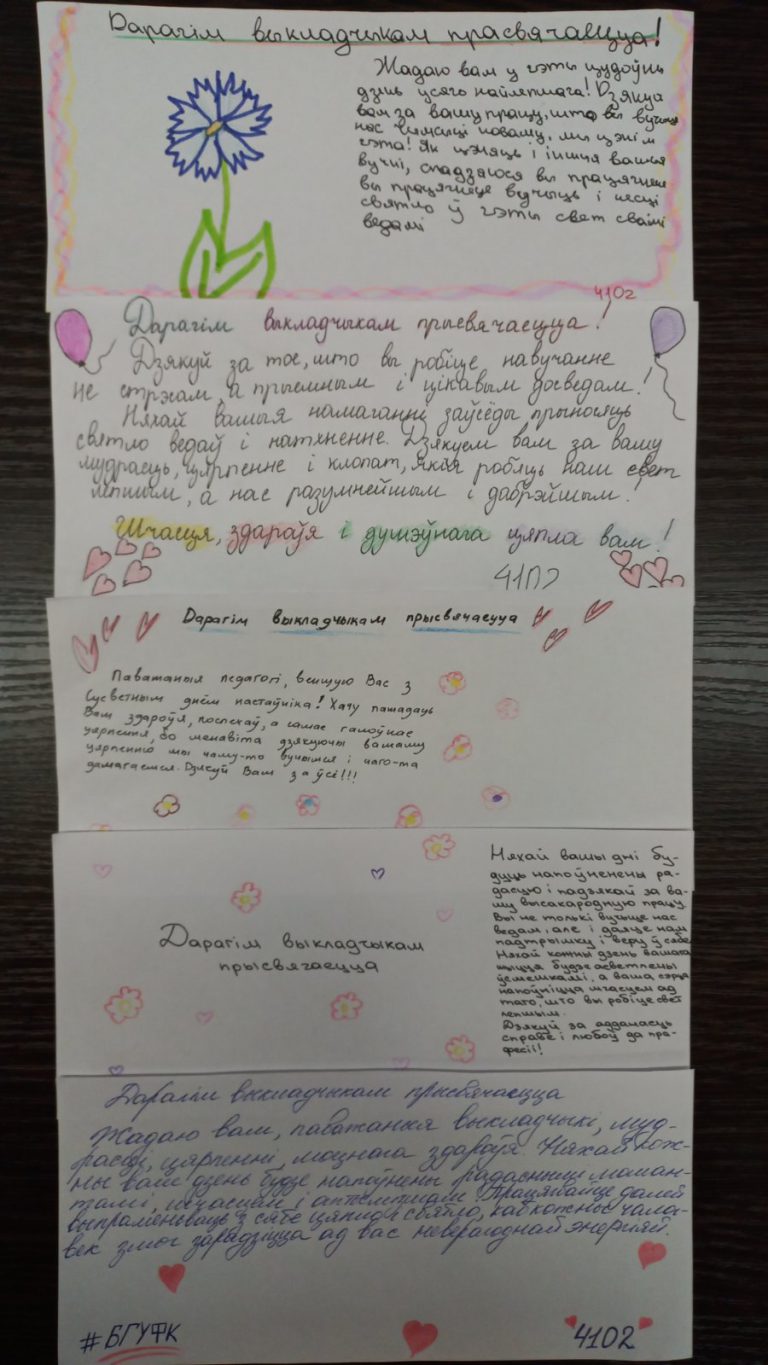 Дарагім выкладчыкам прасвячаецца!
Жадаю вам у гэты цудоўны
дзень усяго найлепшага! Дзякуй
вам за вашу працу, што вы вучыце
нас чамусці новаму, мы цэнім
гэта! Як цэняць і іншыя вашыя
вучні, спадзяюся вы працягнеце
вы працягнеце вучыць і несці
святло ў гэты свет сваімі
ведамі
4102
Дарагім выкладчыкам прысвячаецца!
Дзякуй за тое, што вы робіце навучанне
не стрэсам, а прыемным і цікавым досведам!
Няхай вашыя намаганні заўсёды прыносяць
святло ведаў і натхненне. Дзякуем вам за вашу
мудрасць, цярпенне і клопат, якія робяць наш свет
лепшым, а нас разумнейшым і дабрэйшым!
Шчасця, здароўя і душэўнага цяпла вам!
4102
Дарагім выкладчыкам прысвячаецца
Паважаныя педагогі, веншую Вас з
Сусветным днём настаўніка! Хачу пажадаць
Вам здароўя, поспехаў, а самае галоўнае
цярпення, бо менавіта дзякуючы вашаму
цярпенню мы чаму-то вучымся і чаго-та
дамагаемся. Дзякуй Вам за ўсё!!!
Няхай вашы дні бу-
дуць напоўненены ра-
дасцю і падзякай за ва-
шу высакародную працу.
Вы не толькі вучыце нас
ведам, але і даяце нам
падтрымку і веру ў сябе.
Няхай кожны дзень вашага
жыцця будзе асветлены
ўсмешкамі, а ваша сэрца
напоўніцца шчасцем ад
таго, што вы робіце свет
лепшым.
Дзякуй за адданасць
справе і любоў да пра-
фесіі!
Дарагім выкладчыкам
прысвячаецца
Дарагім выкладчыкам прысвячаецца
Жадаю вам, паважаныя выкладчыкі, муд-
расці, цярпенні, моцнага здароўя. Няхай кож-
ны ваш дзень будзе напоўнены радаснымі маман-
тамі, шчасцем і аптымізмам. Працягвайце далей
выпраменьваць з сябе цяпло і святло, каб кожны чала-
век змог зарадзіцца ад вас неверагоднай энергіяй.
#БГУФК
4102